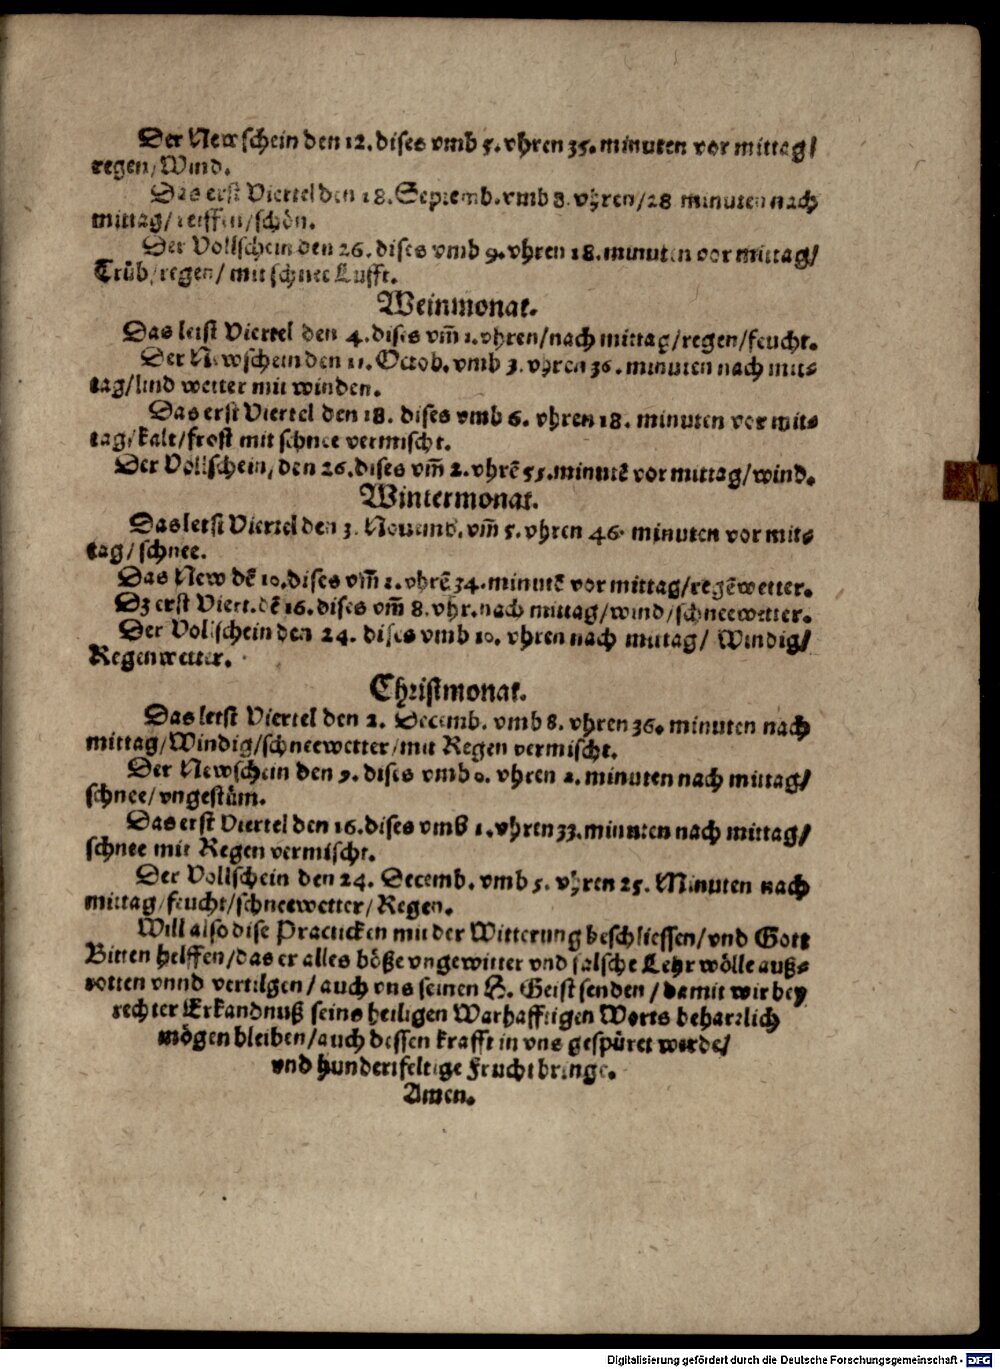 Der New schein den 12. dises vmb 5. vhren 35. minuten vor mittag/
regen/Wind.
Das erst Viertel den 18. Septemb. vmb 8. vhren/28 minuten nach
mittag/reiffen/schön.
Der Vollschein den 26. dises vmb 9. vhren 18. minuten vor mittag/
Trüb/regen/ mit schnee Lufft.
Weinmonat.
Das letst Viertel den 4. dises vm̄ 1. vhren/nach mittag/regen/feucht.
Der Newschein den 11. Octob. vmb 3. vhren 36. minuten nach mit⸗
tag/lind wetter mit winden.
Das erst Viertel den 18. dises vmb 6. vhren 18. minuten vor mit⸗
tag/kalt/frost mit schnee vermischt.
Der Vollschein, den 26. dises vm̄ 2. vhrē 55. minutē vor mittag/wind.
Wintermonat.
Das letst Viertel den 3. Nouemb. vm̄ 5. vhren 46. minuten vor mit⸗
tag/schnee.
Das New dē 10. dises vm̄ 1. vhrē 34. minutē vor mittag/regēwetter.
Dz erst Viert. dē 16. dises vm̄ 8. vhr. nach mittag/wind/schneewetter.
Der Vollschein den 24. dises vmb 10. vhren nach mittag/ Windig/
Regenwetter.
Christmonat.
Das letst Viertel den 2. Decemb. vmb 8. vhren 36. minuten nach
mittag/Windig/schneewetter/mit Regen vermischt.
Der Newschein den 9. dises vmb 0. vhren 2. minuten nach mittag/
schnee/vngestüm.
Das erst Viertel den 16. dises vmb 1. vhren 33. minuten nach mittag/
schnee mit Regen vermischt.
Der Vollschein den 24. Decemb. vmb 5. vhren 25. Minuten nach
mittag/feucht/schneewetter/Regen.
Will also dise Practicken mit der Witterung beschliessen/vnd Gott
Bitten helffen/das er alles böße vngewitter vnd falsche Lehr wölle auß⸗
rotten vnnd vertilgen/auch vns seinen H. Geist senden/damit wir bey
rechter Erkandnuß seins heiligen Warhafftigen Worts beharrlich
mögen bleiben/auch dessen krafft in vns gespüret werde/
vnd hundertfeltige Frucht bringe.
Amen.
Digitalisierung gefördert durch die Deutsche Forschungsgemeinschaft - DFG